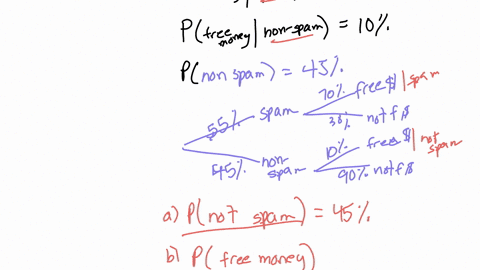 P(free money | non-spam) = 10%
P(non spam) = 45%
70% free $ | spam
55% spam
30% not f$
10% free $ | not spam
45% non-spam
90% not f$
a) P(not spam) = 45%
b) P(free money)